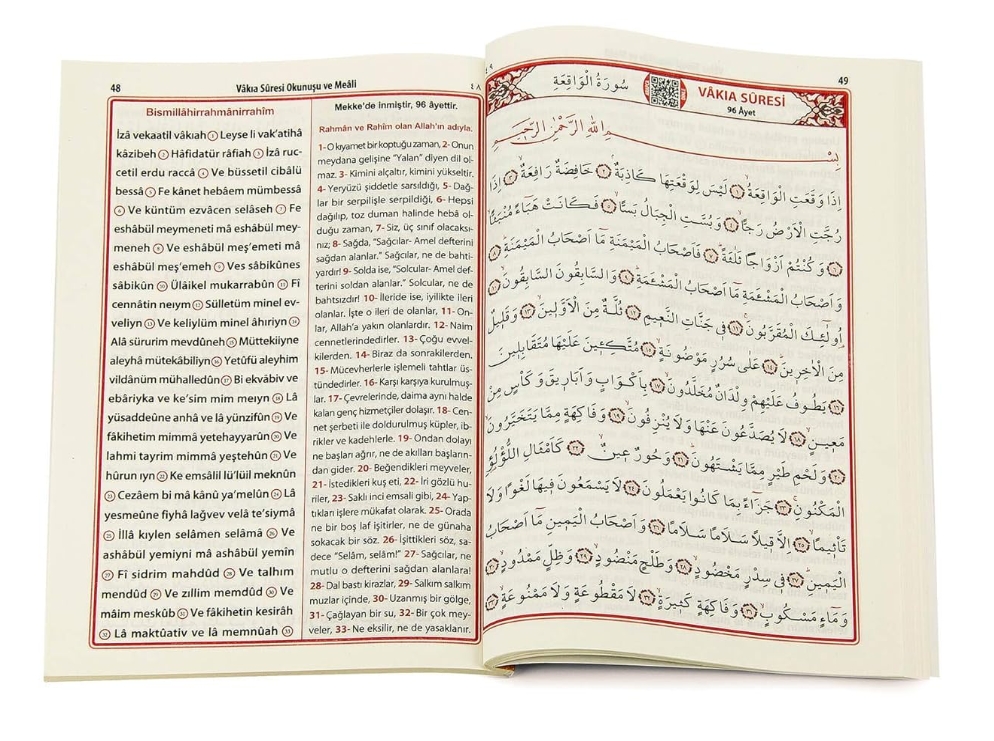 48
Vâkıa Sûresi Okunuşu ve Meâli
٤٨
Bismillâhirrahmânirrahîm
İzâ vekaatil vâkıah ① Leyse li vak'atihâ
kâzibeh ② Hâfidatür râfiah ③ İzâ ruc-
cetil erdu raccâ ④ Ve büssetil cibâlü
bessâ ⑤ Fe kânet hebâem mümbessâ
⑥ Ve küntüm ezvâcen selâseh ⑦ Fe
eshâbül meymeneti mâ eshâbül mey-
meneh ⑧ Ve eshâbül meş'emeti mâ
eshâbül meş'emeh ⑨ Ves sâbikûnes
sâbikûn ⑩ Ülâikel mukarrabûn ⑪ Fî
cennâtin neıym ⑫ Sülletüm minel ev-
veliyn ⑬ Ve keliylüm minel âhıriyn ⑭
Alâ sürurim mevdûneh ⑮ Müttekiiyne
aleyhâ mütekâbiliyn ⑯ Yetûfü aleyhim
vildânüm mühalledûn ⑰ Bi ekvâbiv ve
ebâriyka ve ke'sim mim meıyn ⑱ Lâ
yüsaddeûne anhâ ve lâ yünzifûn ⑲ Ve
fâkihetim mimmâ yetehayyarûn ⑳ Ve
lahmi tayrim mimmâ yeştehûn ㉑ Ve
hûrun ıyn ㉒ Ke emsâlil lü'lüil meknûn
㉓ Cezâem bi mâ kânû ya'melûn ㉔ Lâ
yesmeûne fiyhâ lağvev velâ te'siymâ
㉕ İllâ kıylen selâmen selâmâ ㉖ Ve
ashâbül yemiyni mâ ashâbül yemîn
㉗ Fî sidrim mahdûd ㉘ Ve talhım
mendûd ㉙ Ve zıllim memdûd ㉚ Ve
mâim meskûb ㉛ Ve fâkihetin kesirâh
㉜ Lâ maktûativ ve lâ memnûah ㉝
Mekke'de inmiştir, 96 âyettir.
Rahmân ve Rahîm olan Allah'ın adıyla.
1- O kıyamet bir koptuğu zaman, 2- Onun
meydana gelişine "Yalan" diyen dil ol-
maz. 3- Kimini alçaltır, kimini yükseltir.
4- Yeryüzü şiddetle sarsıldığı, 5- Dağ-
lar bir serpilişle serpildiği, 6- Hepsi
dağılıp, toz duman halinde hebâ ol-
duğu zaman, 7- Siz, üç sınıf olacaksı-
nız; 8- Sağda, "Sağcılar- Amel defterini
sağdan alanlar." Sağcılar, ne de bahti-
yardır! 9- Solda ise, "Solcular- Amel def-
terini soldan alanlar." Solcular, ne de
bahtsızdır! 10- İleride ise, iyilikte ileri
olanlar. İşte o ileri de olanlar, 11- On-
lar, Allah'a yakın olanlardır. 12- Naim
cennetlerindedirler. 13- Çoğu evvel-
kilerden. 14- Biraz da sonrakilerden.
15- Mücevherlerle işlemeli tahtlar üs-
tündedirler. 16- Karşı karşıya kurulmuş-
lar. 17- Çevrelerinde, daima aynı halde
kalan genç hizmetçiler dolaşır. 18- Cen-
net şerbeti ile doldurulmuş küpler, ib-
rikler ve kadehlerle. 19- Ondan dolayı
ne başları ağrır, ne de akılları başların-
dan gider. 20- Beğendikleri meyveler,
21- İstedikleri kuş eti, 22- İri gözlü hu-
riler, 23- Saklı inci emsali gibi, 24- Yap-
tıkları işlere mükafat olarak. 25- Orada
ne bir boş laf işitirler, ne de günaha
sokacak bir söz. 26- İşittikleri söz, sa-
dece "Selâm, selâm!" 27- Sağcılar, ne
mutlu o defterini sağdan alanlara!
28- Dal bastı kirazlar, 29- Salkım salkım
muzlar içinde, 30- Uzanmış bir gölge,
31- Çağlayan bir su, 32- Bir çok mey-
veler, 33- Ne eksilir, ne de yasaklanır.
٤٩
49
سُورَةُ الْوَاقِعَةِ
VÂKIA SÛRESİ
96 Âyet
بِسْمِ اللهِ الرَّحْمٰنِ الرَّحِيمِ
اِذَا وَقَعَتِ الْوَاقِعَةُ ﴿١﴾ لَيْسَ لِوَقْعَتِهَا كَاذِبَةٌ ﴿٢﴾ خَافِضَةٌ رَافِعَةٌ ﴿٣﴾ اِذَا
رُجَّتِ الْاَرْضُ رَجًّا ﴿٤﴾ وَبُسَّتِ الْجِبَالُ بَسًّا ﴿٥﴾ فَكَانَتْ هَبَاءً مُنْبَثًّا
﴿٦﴾ وَكُنْتُمْ اَزْوَاجًا ثَلٰثَةً ﴿٧﴾ فَاَصْحَابُ الْمَيْمَنَةِ مَا اَصْحَابُ الْمَيْمَنَةِ ﴿٨﴾
وَاَصْحَابُ الْمَشْئَمَةِ مَا اَصْحَابُ الْمَشْئَمَةِ ﴿٩﴾ وَالسَّابِقُونَ السَّابِقُونَ ﴿١٠﴾
اُولٰئِكَ الْمُقَرَّبُونَ ﴿١١﴾ فِي جَنَّاتِ النَّعِيمِ ﴿١٢﴾ ثُلَّةٌ مِنَ الْاَوَّلِينَ ﴿١٣﴾ وَقَلِيلٌ
مِنَ الْاٰخِرِينَ ﴿١٤﴾ عَلٰى سُرُرٍ مَوْضُونَةٍ ﴿١٥﴾ مُتَّكِئِينَ عَلَيْهَا مُتَقَابِلِينَ
﴿١٦﴾ يَطُوفُ عَلَيْهِمْ وِلْدَانٌ مُخَلَّدُونَ ﴿١٧﴾ بِاَكْوَابٍ وَاَبَارِيقَ وَكَأْسٍ مِنْ
مَعِينٍ ﴿١٨﴾ لَا يُصَدَّعُونَ عَنْهَا وَلَا يُنْزِفُونَ ﴿١٩﴾ وَفَاكِهَةٍ مِمَّا يَتَخَيَّرُونَ
﴿٢٠﴾ وَلَحْمِ طَيْرٍ مِمَّا يَشْتَهُونَ ﴿٢١﴾ وَحُورٌ عِينٌ ﴿٢٢﴾ كَاَمْثَالِ اللُّؤْلُؤِ
الْمَكْنُونِ ﴿٢٣﴾ جَزَاءً بِمَا كَانُوا يَعْمَلُونَ ﴿٢٤﴾ لَا يَسْمَعُونَ فِيهَا لَغْوًا وَلَا
تَأْثِيمًا ﴿٢٥﴾ اِلَّا قِيلًا سَلَامًا سَلَامًا ﴿٢٦﴾ وَاَصْحَابُ الْيَمِينِ مَا اَصْحَابُ
الْيَمِينِ ﴿٢٧﴾ فِي سِدْرٍ مَخْضُودٍ ﴿٢٨﴾ وَطَلْحٍ مَنْضُودٍ ﴿٢٩﴾ وَظِلٍّ مَمْدُودٍ ﴿٣٠﴾
وَمَاءٍ مَسْكُوبٍ ﴿٣١﴾ وَفَاكِهَةٍ كَثِيرَةٍ ﴿٣٢﴾ لَا مَقْطُوعَةٍ وَلَا مَمْنُوعَةٍ ﴿٣٣﴾